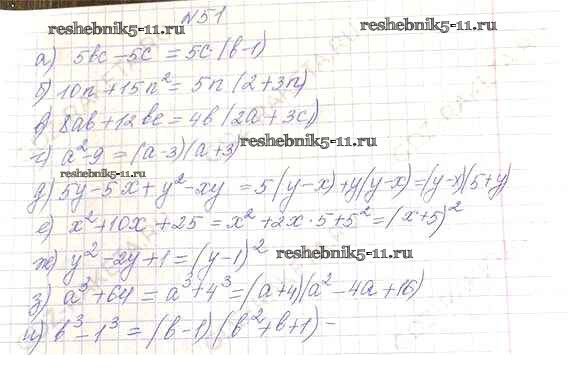 N51
reshebnik5-11.ru
reshebnik5-11.ru
а) 5bc - 5c = 5c·(b-1)
б) 10n + 15n² = 5n (2+3n)
в) 8ab + 12bc = 4b (2a + 3c)
reshebnik5-11.ru
г) a² - 9 = (a-3)(a+3)
reshebnik5-11.ru
д) 5y - 5x + y² - xy = 5(y-x) + y(y-x) = (y-x)(5+y)
е) x² + 10x + 25 = x² + 2x·5 + 5² = (x+5)²
ж) y² - 2y + 1 = (y-1)²
reshebnik5-11.ru
з) a³ + 64 = a³ + 4³ = (a+4)(a² - 4a + 16)
и) b³ - 1³ = (b-1)(b² + b + 1) -